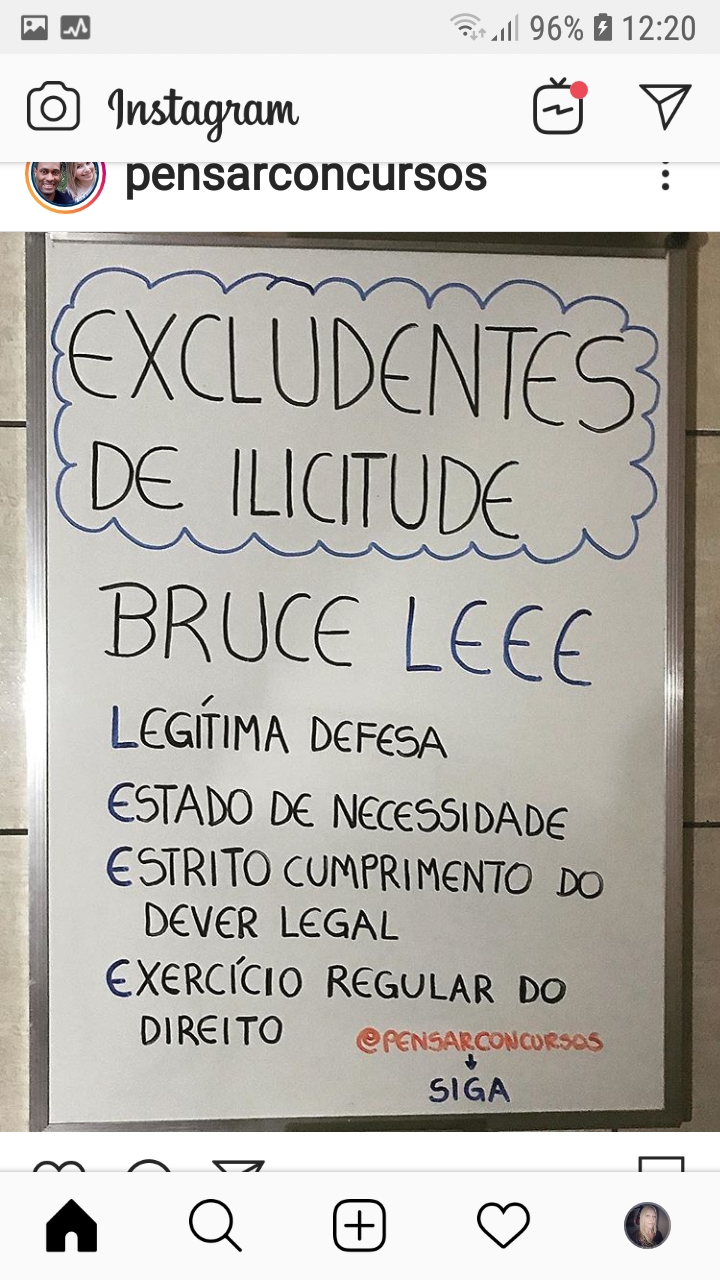 96% 12:20
Instagram
pensarconcursos
EXCLUDENTES
DE ILICITUDE
BRUCE LEEE
LEGÍTIMA DEFESA
ESTADO DE NECESSIDADE
ESTRITO CUMPRIMENTO DO
DEVER LEGAL
EXERCÍCIO REGULAR DO
DIREITO
@PENSARCONCURSOS
SIGA